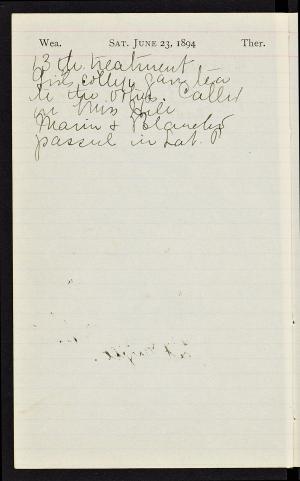 Wea. SAT. JUNE 23, 1894 Ther.
13th treatment
Girls colly. gave tea
to the Called
on Miss
Marin & Blanche
passed in Lat.